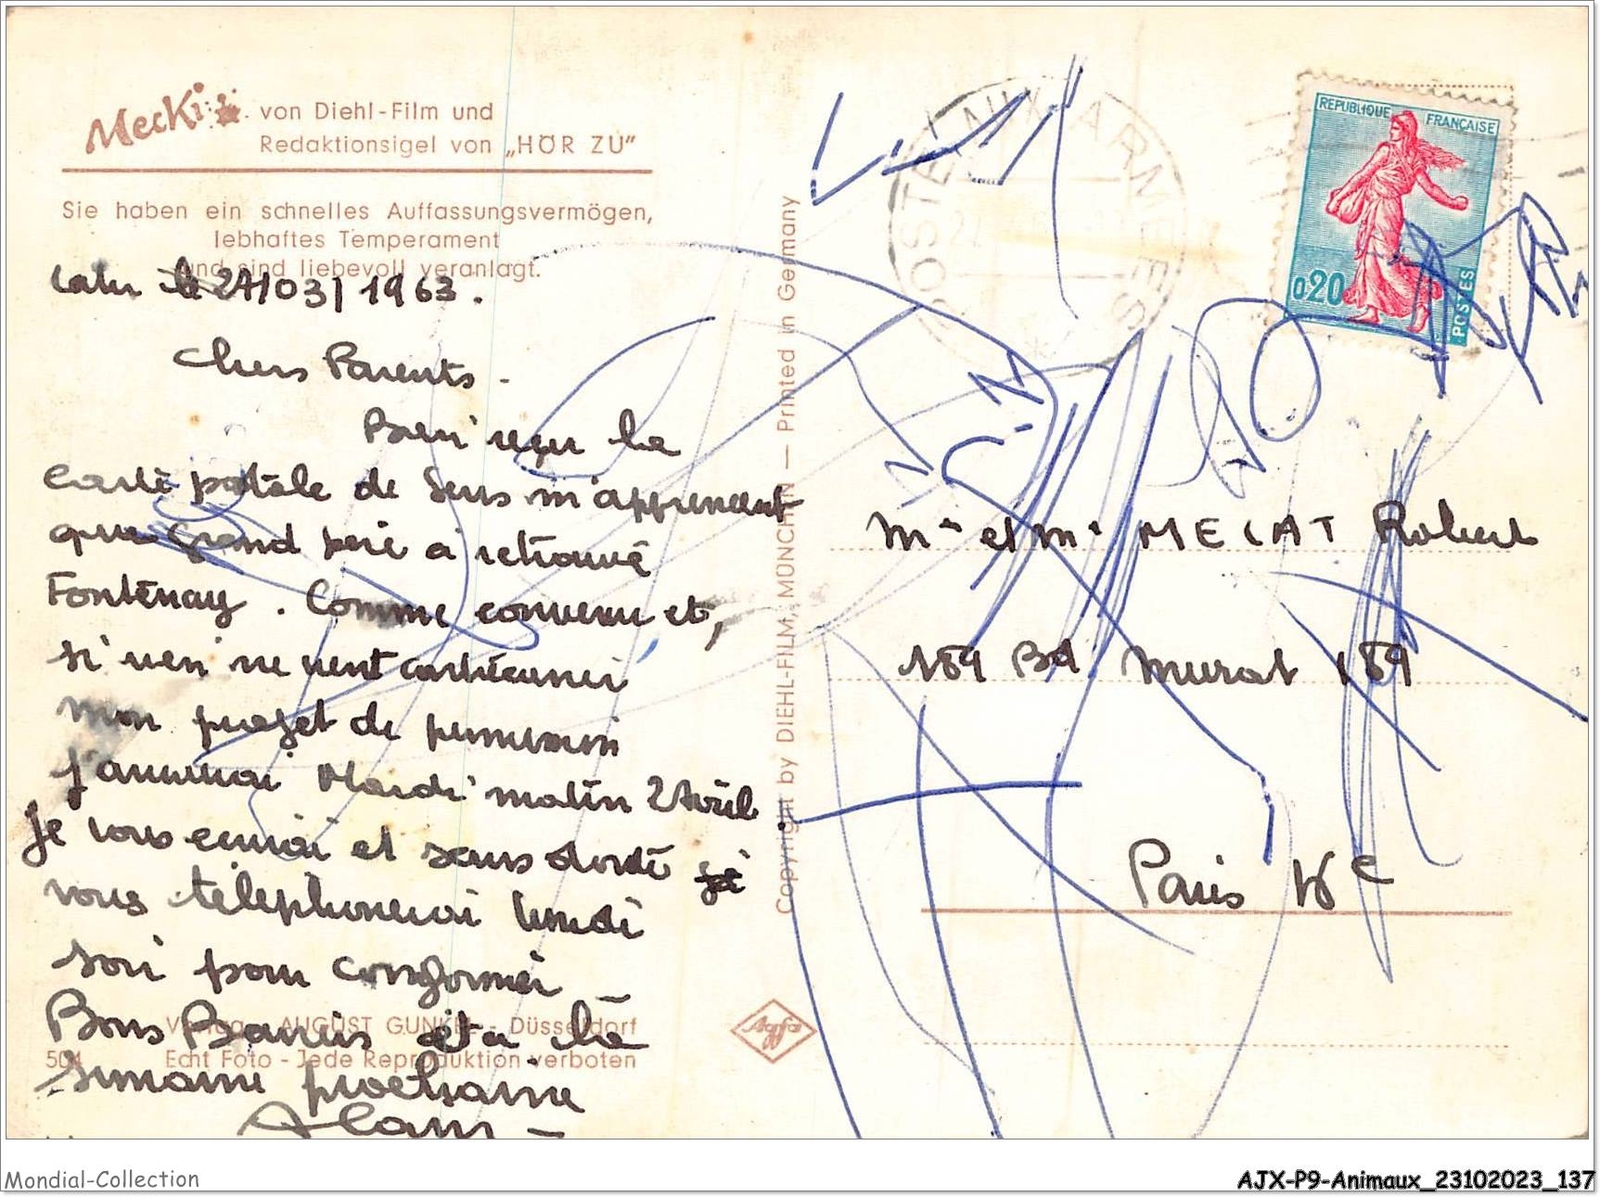 Mecki von Diehl-Film und
Redaktionsigel von „HÖR ZU"
Sie haben ein schnelles Auffassungsvermögen,
lebhaftes Temperament
und sind liebevoll veranlagt.
le 27/03/1963.
Chers Parents.
Bien reçu la
carte postale de Sens m'apprenant
que Grand père a retrouvé
Fontenay. Comme convenu et,
si rien ne vient contrecarrer
mon projet de permission
j'arriverai Mardi matin 2 Avril
Je vous écrirai et sans doute
vous téléphonerai lundi
soir pour confirmer
Bons Baisers et à la
semaine prochaine
Alain
Verlag AUGUST GUNKEL - Düsseldorf
504 Echt Foto - Jede Reproduktion verboten
Copyright by DIEHL-FILM, MÜNCHEN — Printed in Germany
Agfa
POSTE AUX ARMEES
REPUBLIQUE FRANÇAISE
0,20
POSTES
Mr et Me MECAT Robert
189 Bd Murat 189
Paris
Mondial-Collection
AJX-P9-Animaux_23102023_137